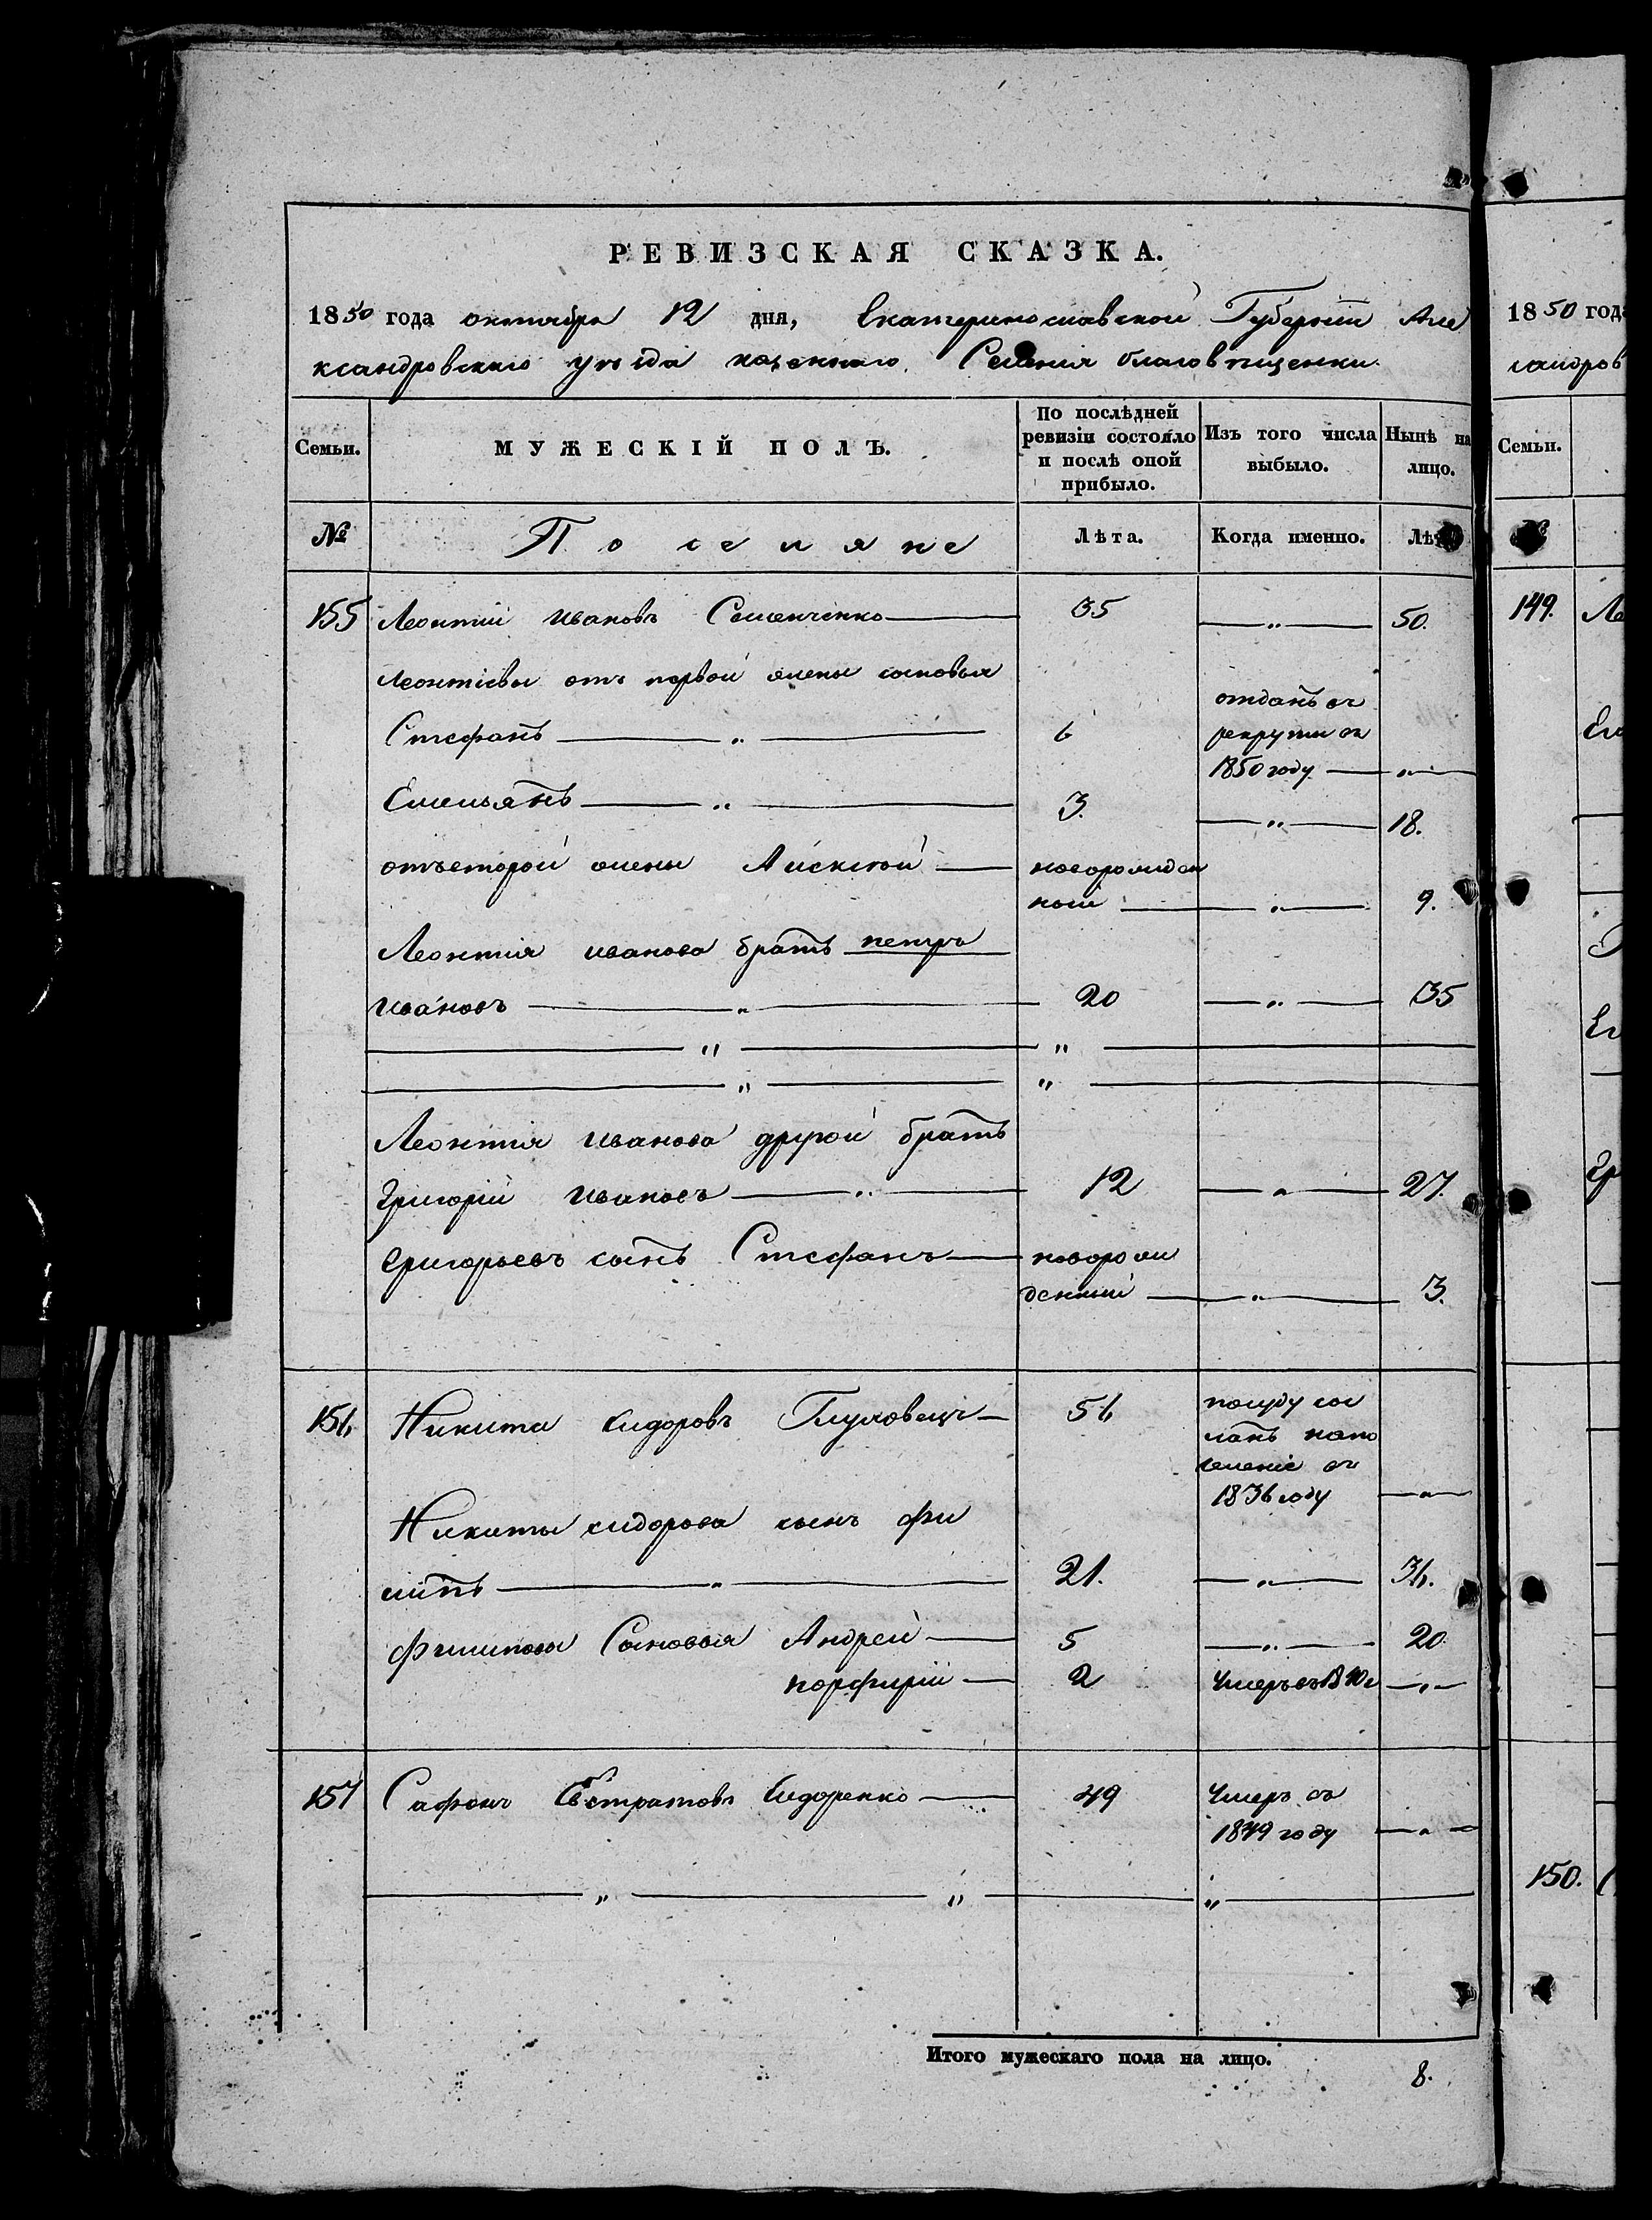 РЕВИЗСКАЯ СКАЗКА.
1850 года октября 12 дня, Екатеринославской Губернии Але
ксандровскаго уѣзда казеннаго Селения благовѣщенки.
Семьи. МУЖЕСКІЙ ПОЛЪ. По послѣдней ревизіи состояло и послѣ оной прибыло. Изъ того числа выбыло. Нынѣ на лицо.
№ Поселяне Лѣта. Когда именно. Лѣ
155 Леонтий Ивановъ Семенченко 35 — 50.
Леонтіевы отъ первой жены сыновья
Стефанъ 6 отданъ въ рекруты въ 1850 году —
Емельянъ 3. — 18.
отъ второй жены Алексѣй новорожден
ный — 9.
Леонтия Иванова братъ петръ
Ивановъ 20 — 35
Леонтия Иванова другой братъ
Григорий Ивановъ 12 — 27.
Григорьевъ сынъ Стефанъ новорож
денный — 3.
156 Никита Сидоровъ Глуховецъ 56 посуду сос
ланъ напо
селение въ
1836 году —
Никиты сидорова сынъ фи
липъ 21. — 36.
Филиповы Сыновья Андрей 5 — 20.
порфирий 2 Умеръ въ 1840 г —
157 Сафонъ Евстратовъ Сидоренко 49 Умеръ въ
1849 году —
Итого мужескаго пола на лицо. 8.
1850 год
Семьи.
149. Ле
Гр
150.